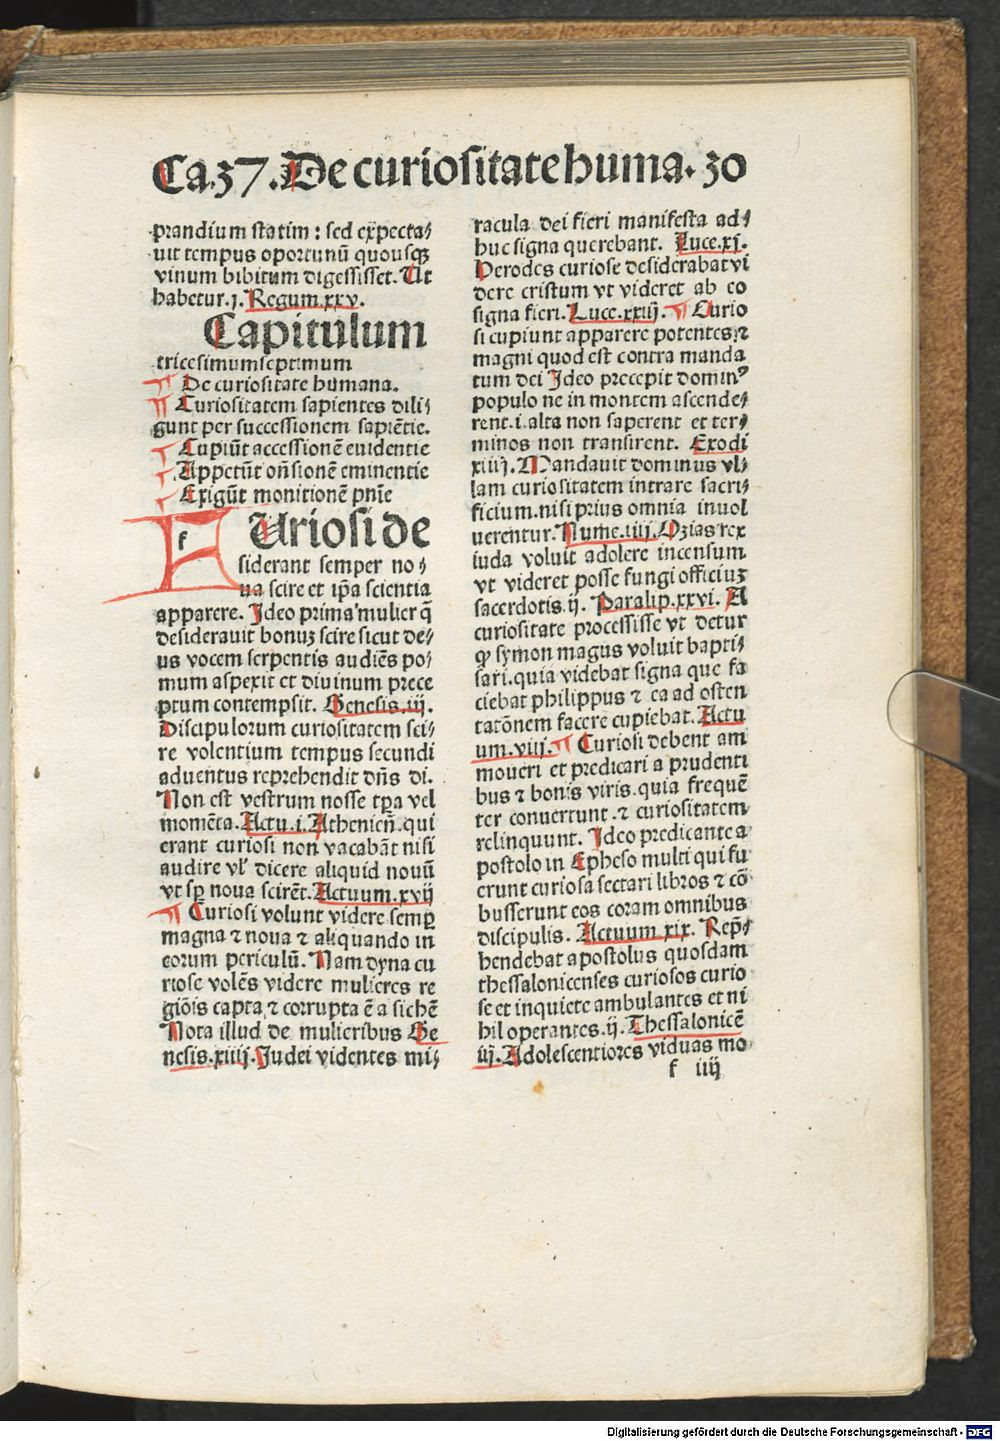 Ca.37.De curiositate huma. 30
prandium statim : sed expecta⸗
uit tempus oportunū quousqꝫ
vinum bibitum digessisset. Ut
habetur.j. Regum.xxv.
Capitulum
tricesimumseptimum
¶ De curiositate humana.
¶ Curiositatem sapientes dili⸗
gunt per successionem sapiētie.
Cupiūt accessionē euidentie
Appetūt oñsionē eminentie
Exigūt monitionē pnīe
f Uriosi de
siderant semper no⸗
ua scire et ip̄a scientia
apparere. Ideo prima mulier q̄
desiderauit bonuꝫ scire sicut de⸗
us vocem serpentis audiēs po⸗
mum aspexit et diuinum prece
ptum contempsit. Genesis.iij.
Discipulorum curiositatem sci⸗
re volentium tempus secundi
aduentus reprehendit dñs di.
Non est vestrum nosse tp̄a vel
momēta. Actu.i. Atheniēn̄.qui
erant curiosi non vacabāt nisi
audire vl' dicere aliquid nouū
vt sꝑ noua scirēt. Actuum.xvij
¶ Curiosi volunt videre semꝑ
magna ⁊ noua ⁊ aliquando in
eorum periculū. Nam dyna cu
riose volēs videre mulieres re
giōis capta ⁊ corrupta ē a sichē
Nota illud de mulieribus Ge
nesis.xiiij. Judei videntes mi⸗
racula dei fieri manifesta ad⸗
huc signa querebant. Luce.xj.
Herodes curiose desiderabat vi
dere cristum vt videret ab eo
signa fieri. Luce.xxiij. ¶ Curio
si cupiunt apparere potentes ⁊
magni quod est contra manda
tum dei Ideo precepit domin⁹
populo ne in montem ascende⸗
rent.i.alta non saperent et ter⸗
minos non transirent. Exodi
xiiij. Mandauit dominus vl⸗
lam curiositatem intrare sacri⸗
ficium.nisi prius omnia inuol
uerentur. Nume.iiij. Ozias rex
iuda voluit adolere incensum
vt videret posse fungi officiuꝫ
sacerdotis.ij. Paralip.xxvi. A
curiositate processisse vt detur
ꝙ symon magus voluit bapti⸗
sari.quia videbat signa que fa
ciebat philippus ⁊ ea ad osten
tatōnem facere cupiebat. Actu
um.viij. ¶ Curiosi debent am
moueri et predicari a prudenti
bus ⁊ bonis viris.quia frequē
ter conuertunt.⁊ curiositatem
relinquunt. Ideo predicante a
postolo in Epheso multi qui fu
erunt curiosa sectari libros ⁊ cō
busserunt eos coram omnibus
discipulis. Actuum.xix. Rep̄⸗
hendebat apostolus quosdam
thessalonicenses curiosos curio
se et inquiete ambulantes et ni
hil operantes.ij. Thessalonicē
iij. Adolescentiores viduas mo
f iiij
Digitalisierung gefördert durch die Deutsche Forschungsgemeinschaft - DFG